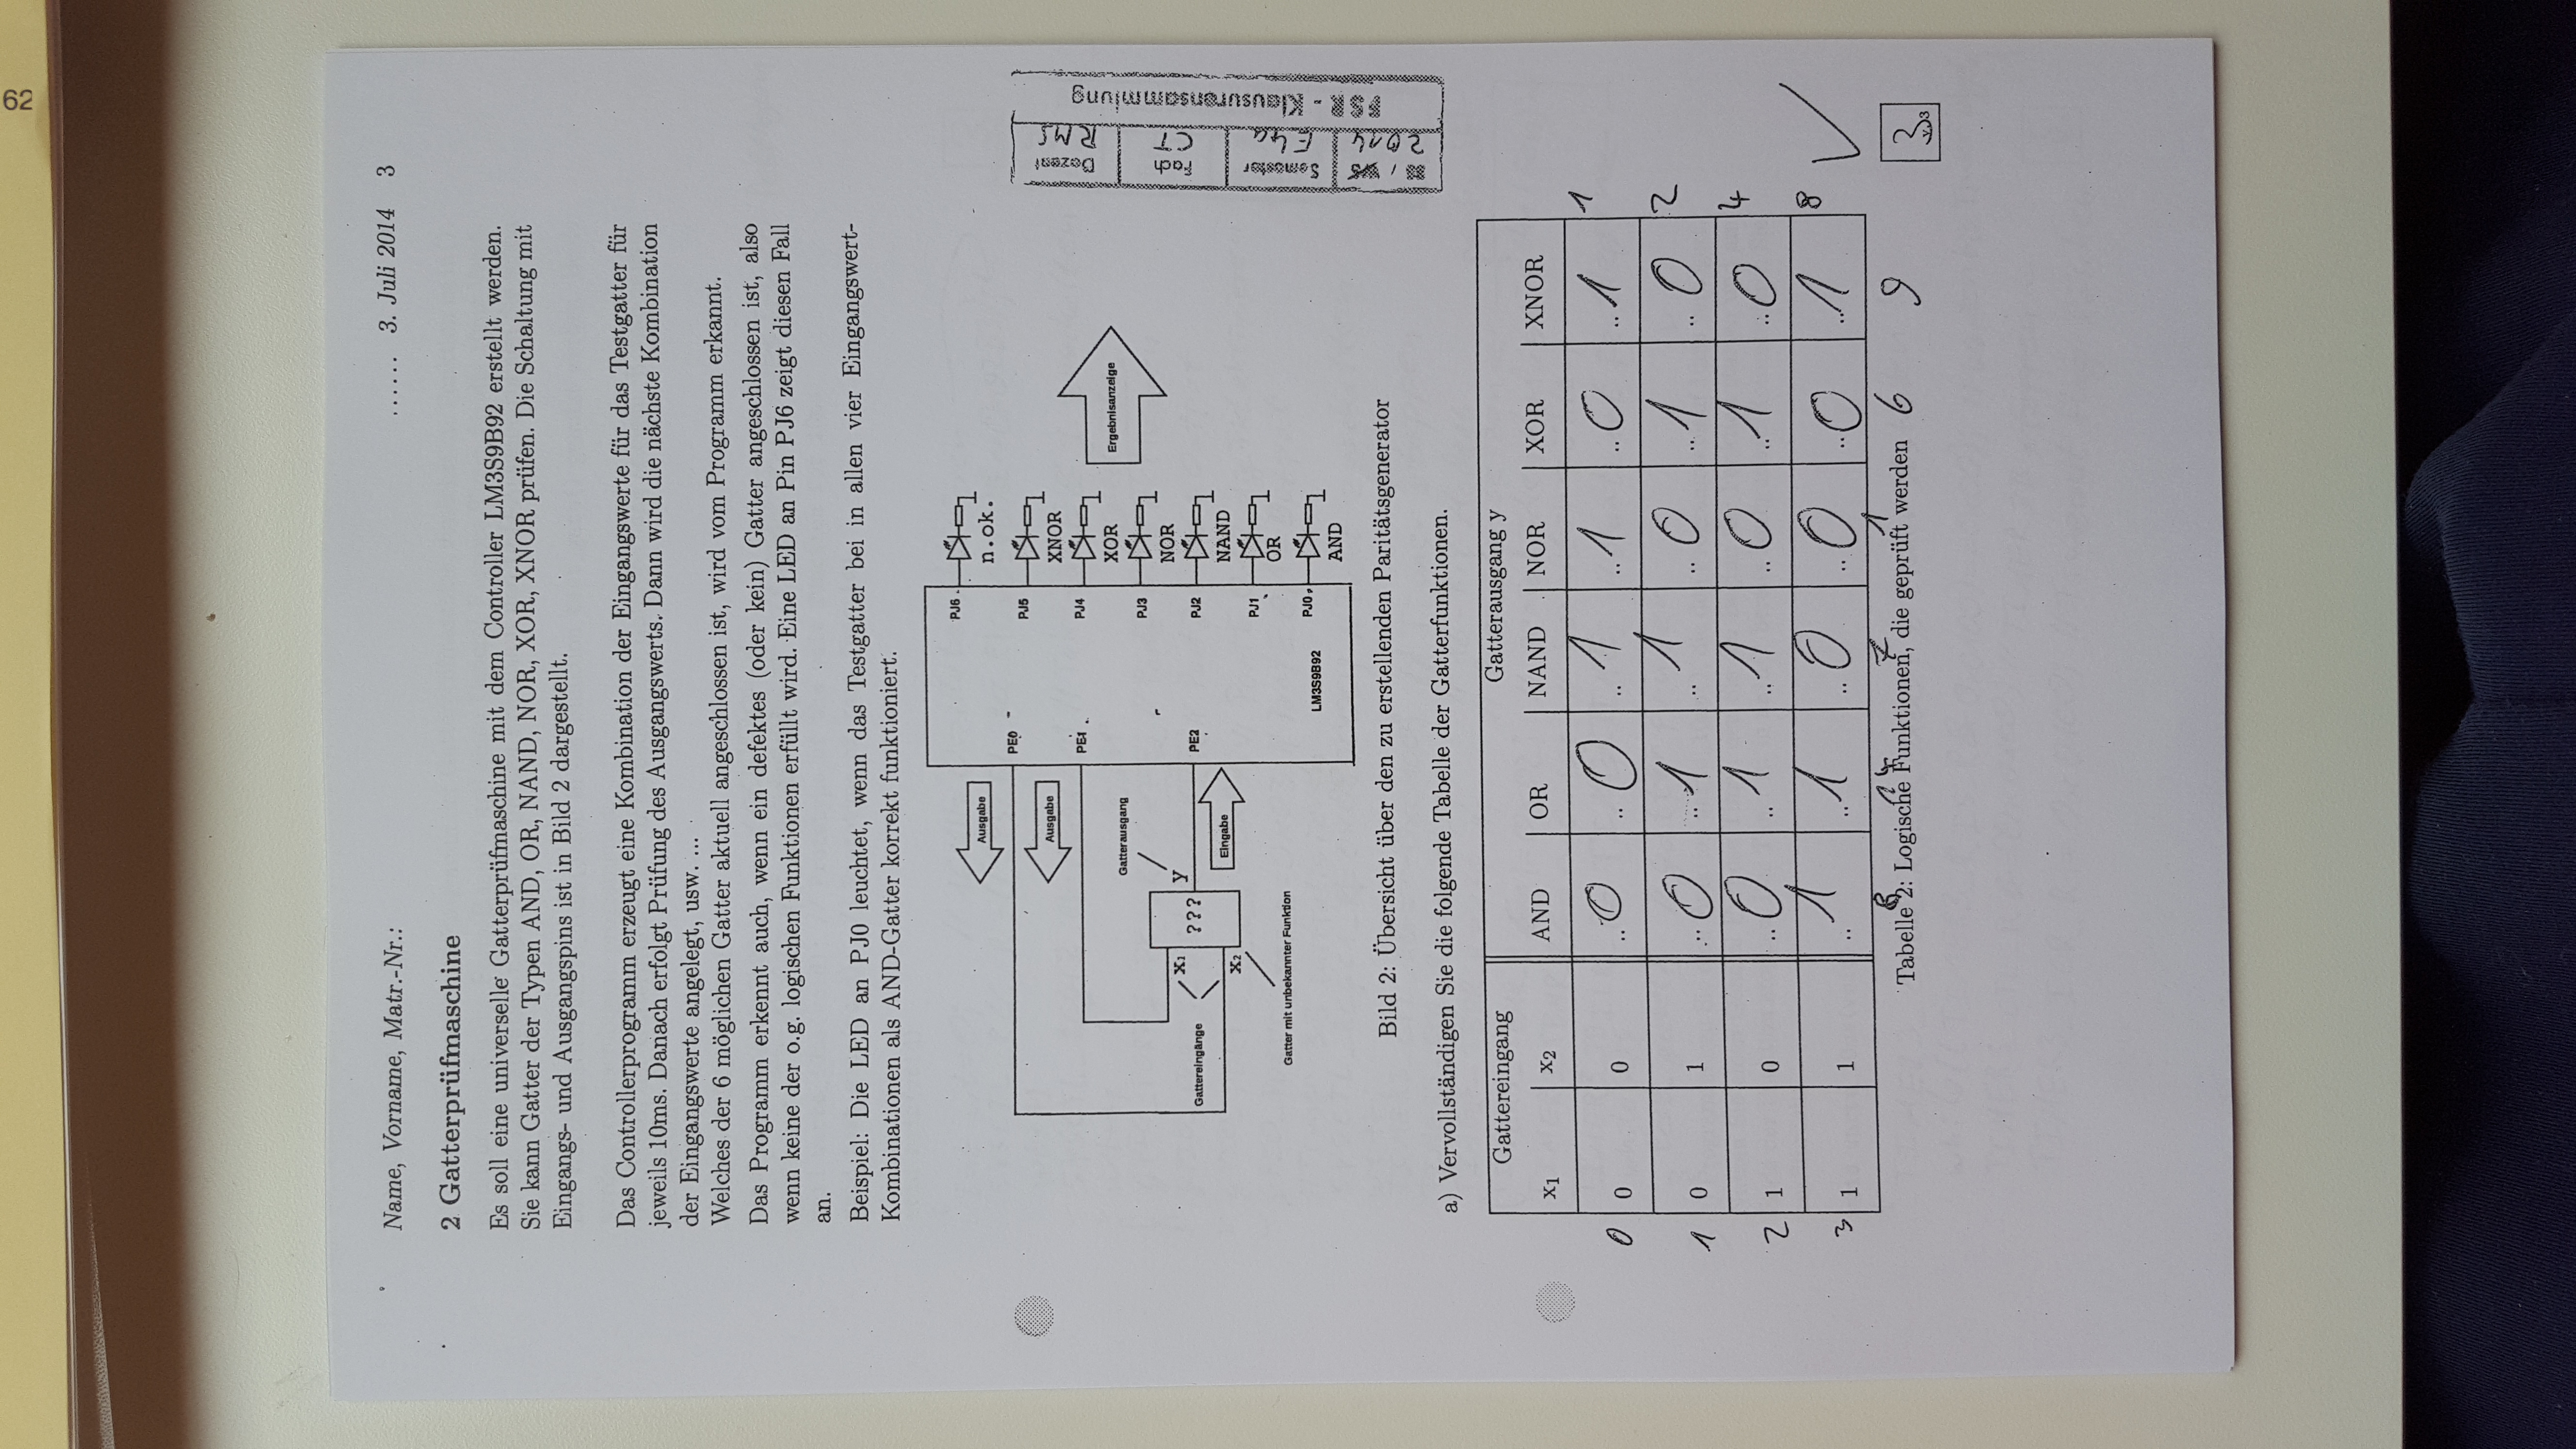 62
Name, Vorname, Matr.-Nr.: ...... 3. Juli 2014 3
2 Gatterprüfmaschine
Es soll eine universelle Gatterprüfmaschine mit dem Controller LM3S9B92 erstellt werden.
Sie kann Gatter der Typen AND, OR, NAND, NOR, XOR, XNOR prüfen. Die Schaltung mit
Eingangs- und Ausgangspins ist in Bild 2 dargestellt.
Das Controllerprogramm erzeugt eine Kombination der Eingangswerte für das Testgatter für
jeweils 10ms. Danach erfolgt Prüfung des Ausgangswerts. Dann wird die nächste Kombination
der Eingangswerte angelegt, usw. ...
Welches der 6 möglichen Gatter aktuell angeschlossen ist, wird vom Programm erkannt.
Das Programm erkennt auch, wenn ein defektes (oder kein) Gatter angeschlossen ist, also
wenn keine der o.g. logischen Funktionen erfüllt wird. Eine LED an Pin PJ6 zeigt diesen Fall
an.
Beispiel: Die LED an PJ0 leuchtet, wenn das Testgatter bei in allen vier Eingangswert-
Kombinationen als AND-Gatter korrekt funktioniert.
Ausgabe
PE0
Ausgabe
PE1
Gatterausgang
Gattereingänge
X1
X2
???
y
PE2
Eingabe
Gatter mit unbekannter Funktion
LM3S9B92
PJ6
n.ok.
PJ5
XNOR
PJ4
XOR
PJ3
NOR
PJ2
NAND
PJ1
OR
PJ0
AND
Ergebnisanzeige
Semester Fach Dozent
2014 E4a CT RMS
FSR - Klausurensammlung
Bild 2: Übersicht über den zu erstellenden Paritätsgenerator
a) Vervollständigen Sie die folgende Tabelle der Gatterfunktionen.
Gattereingang Gatterausgang y
x1 x2 AND OR NAND NOR XOR XNOR
0 0 0 ..0 ..0 ..1 ..1 ..0 ..1 1
1 0 1 ..0 ..1 ..1 ..0 ..1 ..0 2
2 1 0 ..0 ..1 ..1 ..0 ..1 ..0 4
3 1 1 ..1 ..1 ..0 ..0 ..0 ..1 8
8 14 7 1 6 9
Tabelle 2: Logische Funktionen, die geprüft werden
3